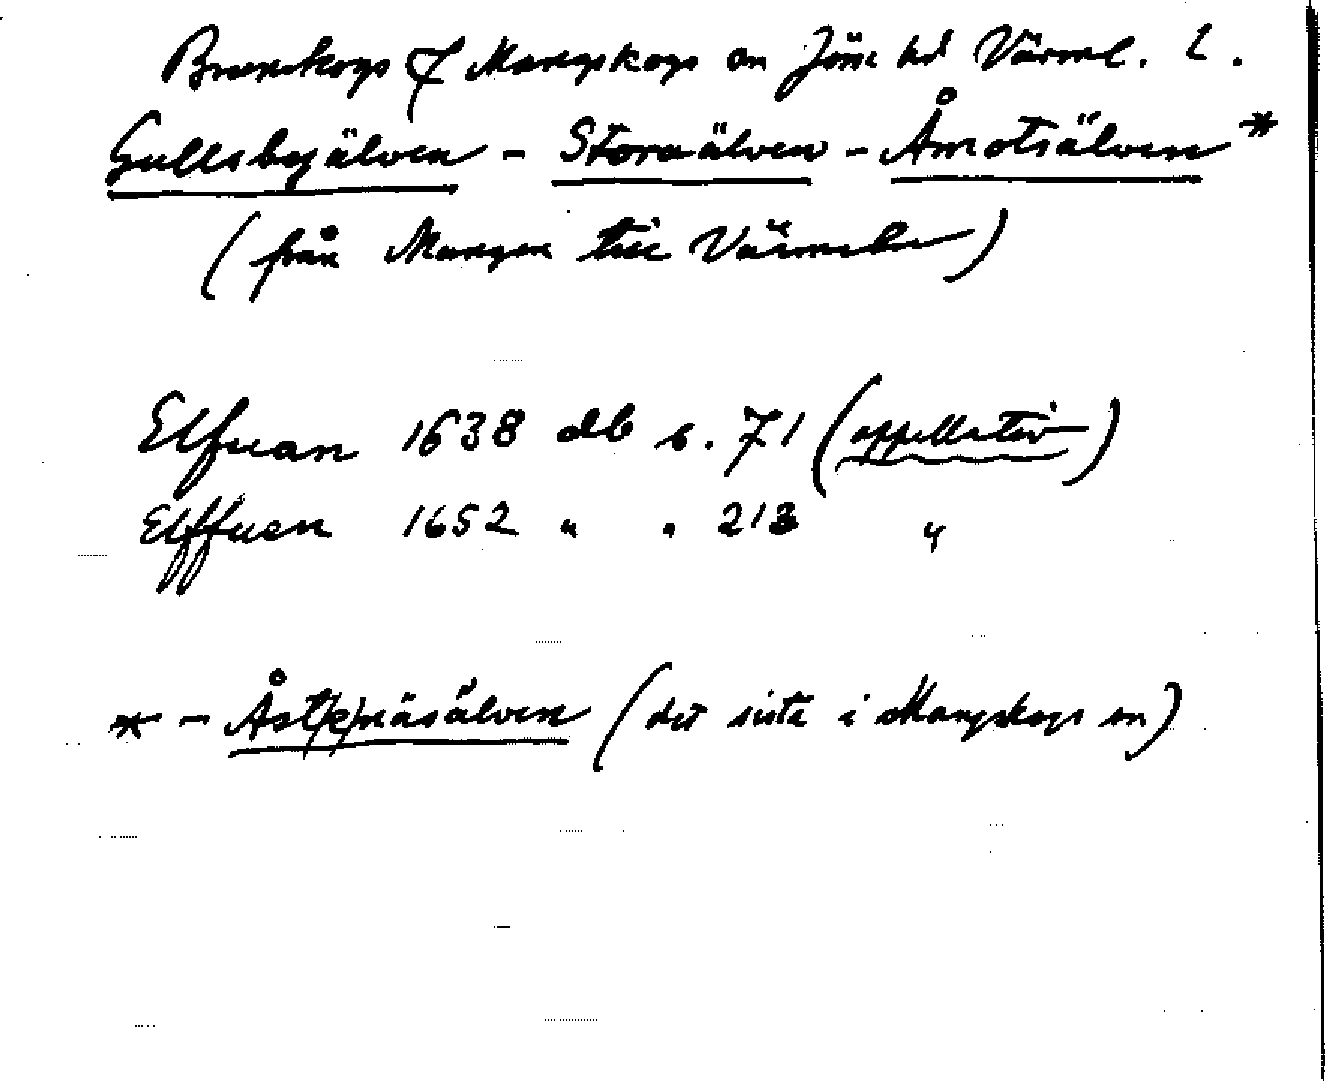 Brunskogs & Mangskogs sn Jösse hd Värml. L.
Gullsbyälven - Storaälven - Åmotsälven *
(från Mangen till Värmeln)
Elfuan 1638 db s. 71 (appellativ)
Elffuen 1652 " " 213 "
* - Åst(e)näsälven (det sista i Mangskogs sn)